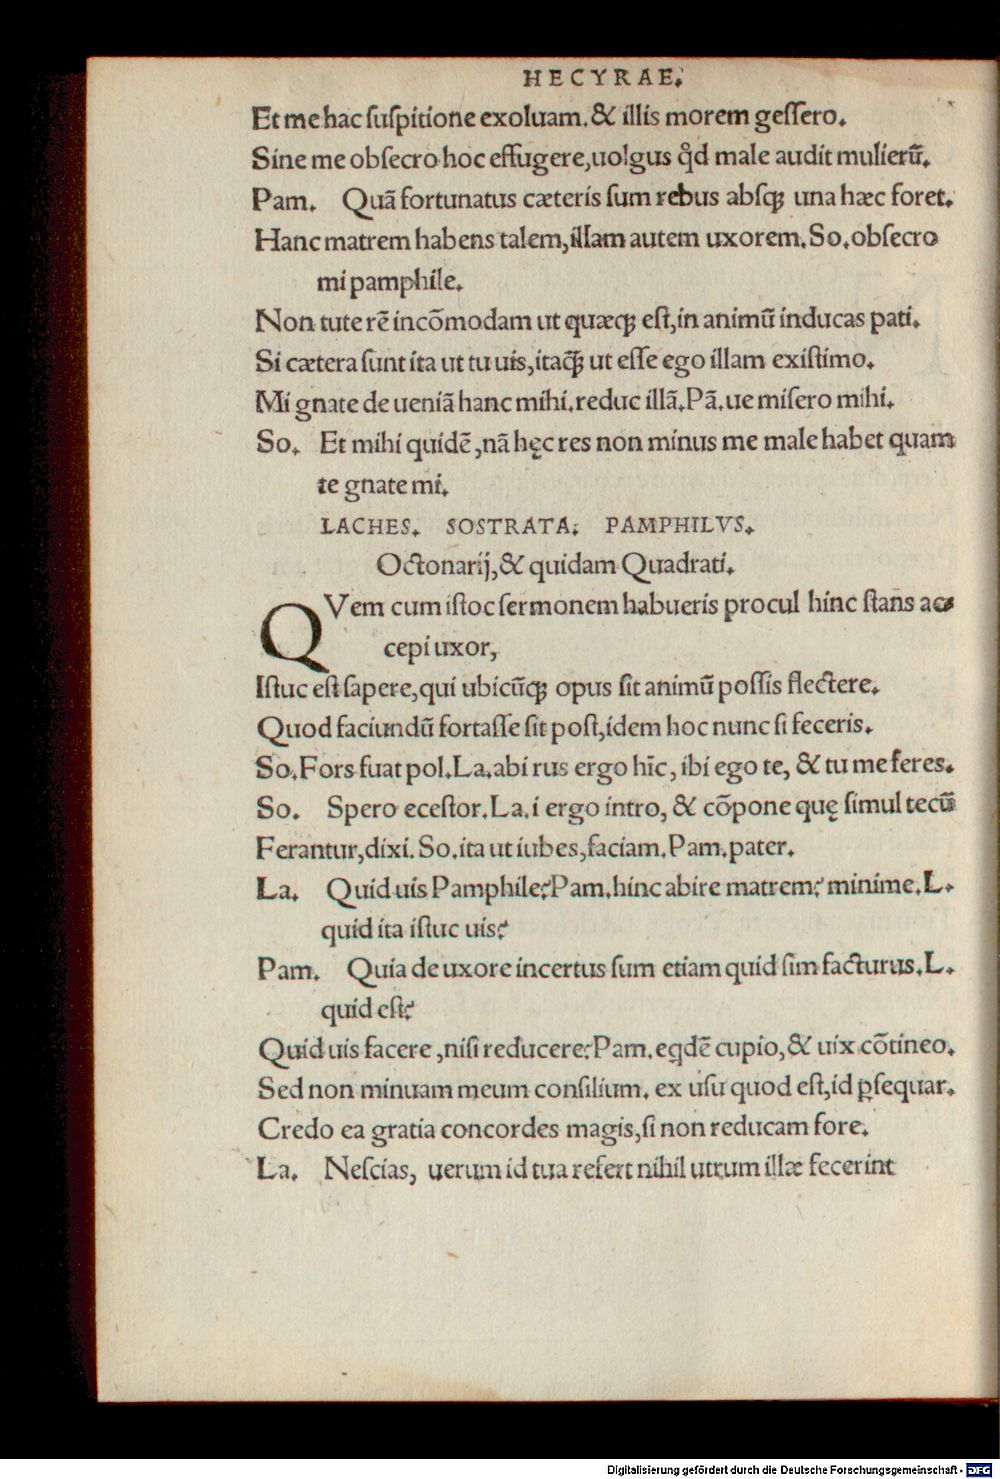 HECYRAE.
Et me hac suſpitione exoluam. & illis morem geſſero.
Sine me obſecro hoc effugere, uolgus qd̃ male audit mulierũ.
Pam. Quã fortunatus cæteris ſum rebus abſq; una hæc foret.
Hanc matrem habens talem, illam autem uxorem. So. obſecro
mi pamphile.
Non tute rẽ incõmodam ut quæq; eſt, in animũ inducas pati.
Si cætera ſunt ita ut tu uis, itaq̃; ut eſſe ego illam exiſtimo.
Mi gnate da ueniã hanc mihi. reduc illã. Pã. ue miſero mihi.
So. Et mihi quidẽ, nã hęc res non minus me male habet quam
te gnate mi.
LACHES. SOSTRATA. PAMPHILVS.
Octonarij, & quidam Quadrati.
QVem cum iſtoc ſermonem habueris procul hinc ſtans ac-
cepi uxor,
Iſtuc eſt ſapere, qui ubicũq; opus ſit animũ poſſis flectere.
Quod faciundũ fortaſſe ſit poſt, idem hoc nunc ſi feceris.
So. Fors fuat pol. La. abi rus ergo hĩc, ibi ego te, & tu me feres.
So. Spero eceſtor. La. i ergo intro, & cõpone quę ſimul tecũ
Ferantur, dixi. So. ita ut iubes, faciam. Pam. pater.
La. Quid uis Pamphile? Pam. hinc abire matrem? minime. L.
quid ita iſtuc uis?
Pam. Quia de uxore incertus ſum etiam quid ſim facturus. L.
quid eſt?
Quid uis facere, niſi reducere? Pam. eqdẽ cupio, & uix cõtineo.
Sed non minuam meum conſilium. ex uſu quod eſt, id ꝑſequar.
Credo ea gratia concordes magis, ſi non reducam fore.
La. Neſcias, uerum id tua refert nihil utrum illæ fecerint
Digitalisierung gefördert durch die Deutsche Forschungsgemeinschaft - DFG